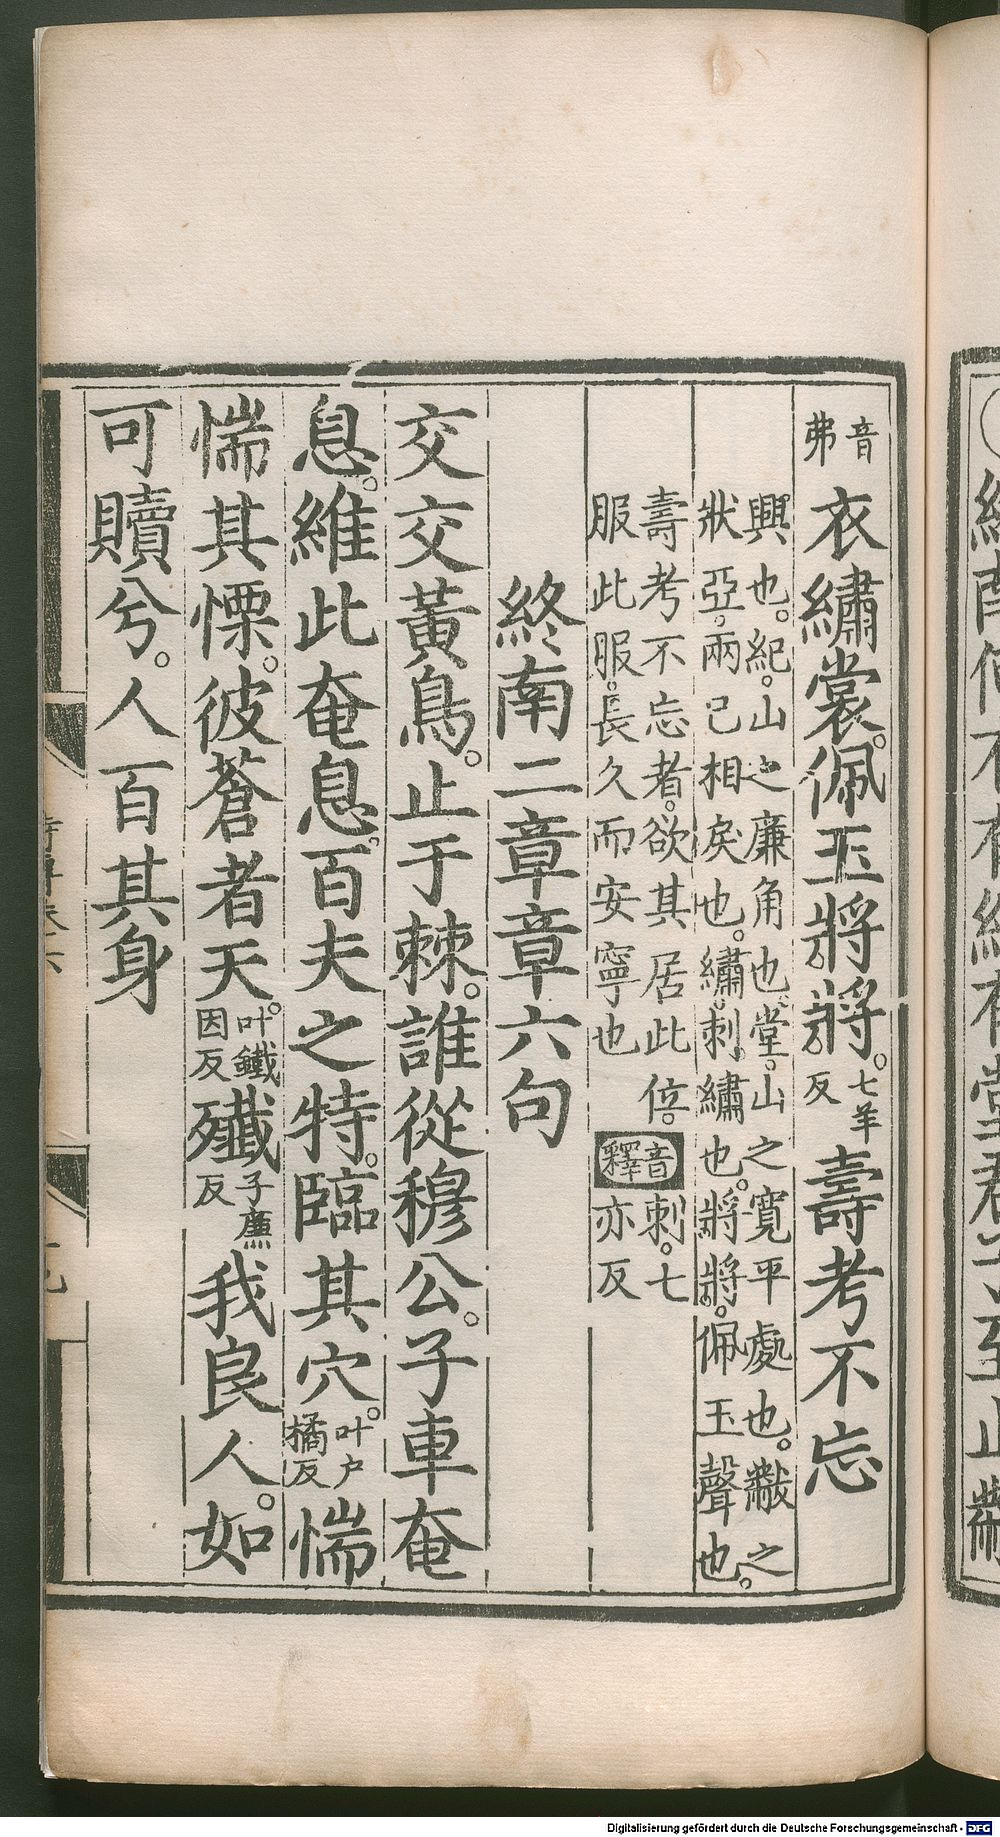 音弗衣繡裳。佩玉將將。七羊反壽考不忘
興也。紀。山之廉角也。堂。山之寬平處也。黻之
狀亞。兩己相戾也。繡。刺繡也。將將。佩玉聲也。
壽考不忘者。欲其居此位。
服此服。長久而安寧也
音釋
刺。七
亦反
終南二章章六句
交交黃鳥。止于棘。誰從穆公。子車奄
息。維此奄息。百夫之特。臨其穴。叶戶橘反惴
惴其慄。彼蒼者天。叶鐵因反殲子廉反我良人。如
可贖兮。人百其身
詩傳卷六
Digitalisierung gefördert durch die Deutsche Forschungsgemeinschaft - DFG